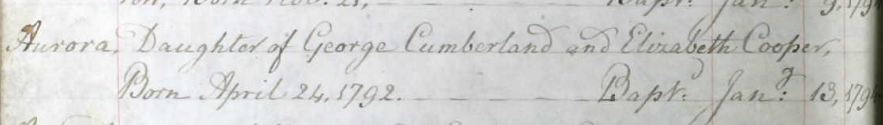 Born Nov. 21, Bapt. Jan.y 9, 179
Aurora, Daughter of George Cumberland and Elizabeth Cooper,
Born April 24, 1792. Bapt.d Jan.y 13, 179